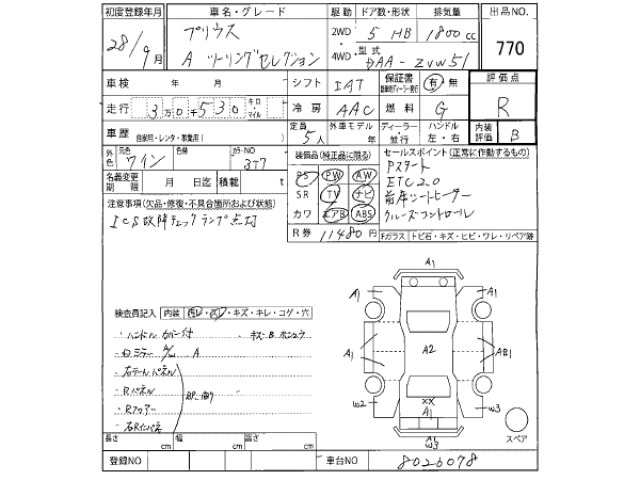 初度登録年月 車名・グレード 駆動 ドア数・形状 排気量 出品NO.
28/9月 プリウス 2WD 5 HB 1800cc 770
A ツーリングセレクション 4WD 型式 DAA-ZVW51
車検 年 月 シフト IAT 保証書 有・無 評価点
走行 3万0千530 キロ・マイル 冷房 AAC 燃料 G R
車歴 自家用・レンタ・事業用( ) 定員 5人 外車モデル 年 ディーラー・並行 ハンドル 左・右 内装評価 B
外色 元色 ワイン 色替 カラーNO 3T7 装備品(純正品に限る) セールスポイント(正常に作動するもの)
名義変更期限 月 日迄 積載 t PS PW AW Pスタート
注意事項(欠品・修復・不具合箇所および状態) SR TV ナビ ETC2.0
ICS故障チェックランプ点灯 カワ エアB ABS 前席シートヒーター
クルーズコントロール
R券 11480円 Fガラス トビ石・キズ・ヒビ・ワレ・リペア跡
A1
検査員記入 内装 汚レ・スレ・キズ・キレ・コゲ・穴 A1 A1
・ハンドル カバー付 キズ・B
・ミラー A/W A A1 A2 AB1
・右テールパネル
・Rパネル
・Rフロアー W2 XX A1 W3
・右Rインパネ W3
スペア
長さ cm 幅 cm 高さ cm
登録NO 車台NO 8026078